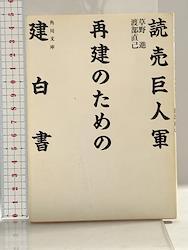 読売巨人軍
再建のための
建白書
草野 進
渡部直己
角川文庫